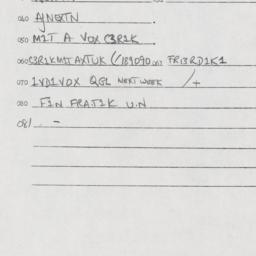 040 AJNEXTN .
050 M1T A VOX C3R1K .
060 C3R1KM1TAXTUK (/189090 063 FR13RD1K1
070 1VD1VOX QGL NEXT WEEK /+
080 F1N FRAT1K U.N
081 . -